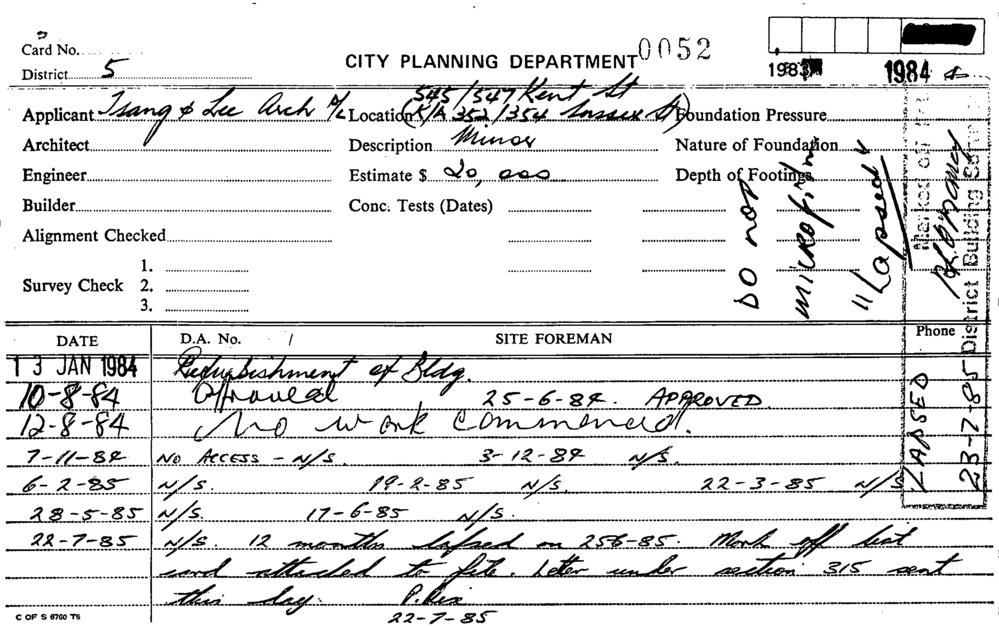 Card No.
District 5
CITY PLANNING DEPARTMENT 0052
1983
1984
Applicant Tsang & Lee Arch P/L
Location 545/547 Kent St
(K/A 352/354 Sussex St)
Foundation Pressure
Architect
Description Minor
Nature of Foundation
Engineer
Estimate $ 20,000
Depth of Footings
Builder
Conc. Tests (Dates)
Alignment Checked
Survey Check
1.
2.
3.
DO NOT
MICROFILM
"Lapsed"
Marked off
District Building Surv
LAPSED
23-7-85
DATE
D.A. No. /
SITE FOREMAN
Phone
13 JAN 1984 Refurbishment of Bldg.
10-8-84 Approved 25-6-84. APPROVED
12-8-84 No work commenced.
7-11-84 NO ACCESS - N/S. 3-12-84 N/S.
6-2-85 N/S. 19-2-85 N/S. 22-3-85 N/S
28-5-85 N/S. 17-6-85 N/S.
22-7-85 N/S. 12 months lapsed on 25-6-85. Mark off list
card attached to file. Letter under section 315 sent
this day. P. Rix
22-7-85
C OF S 6760 T5